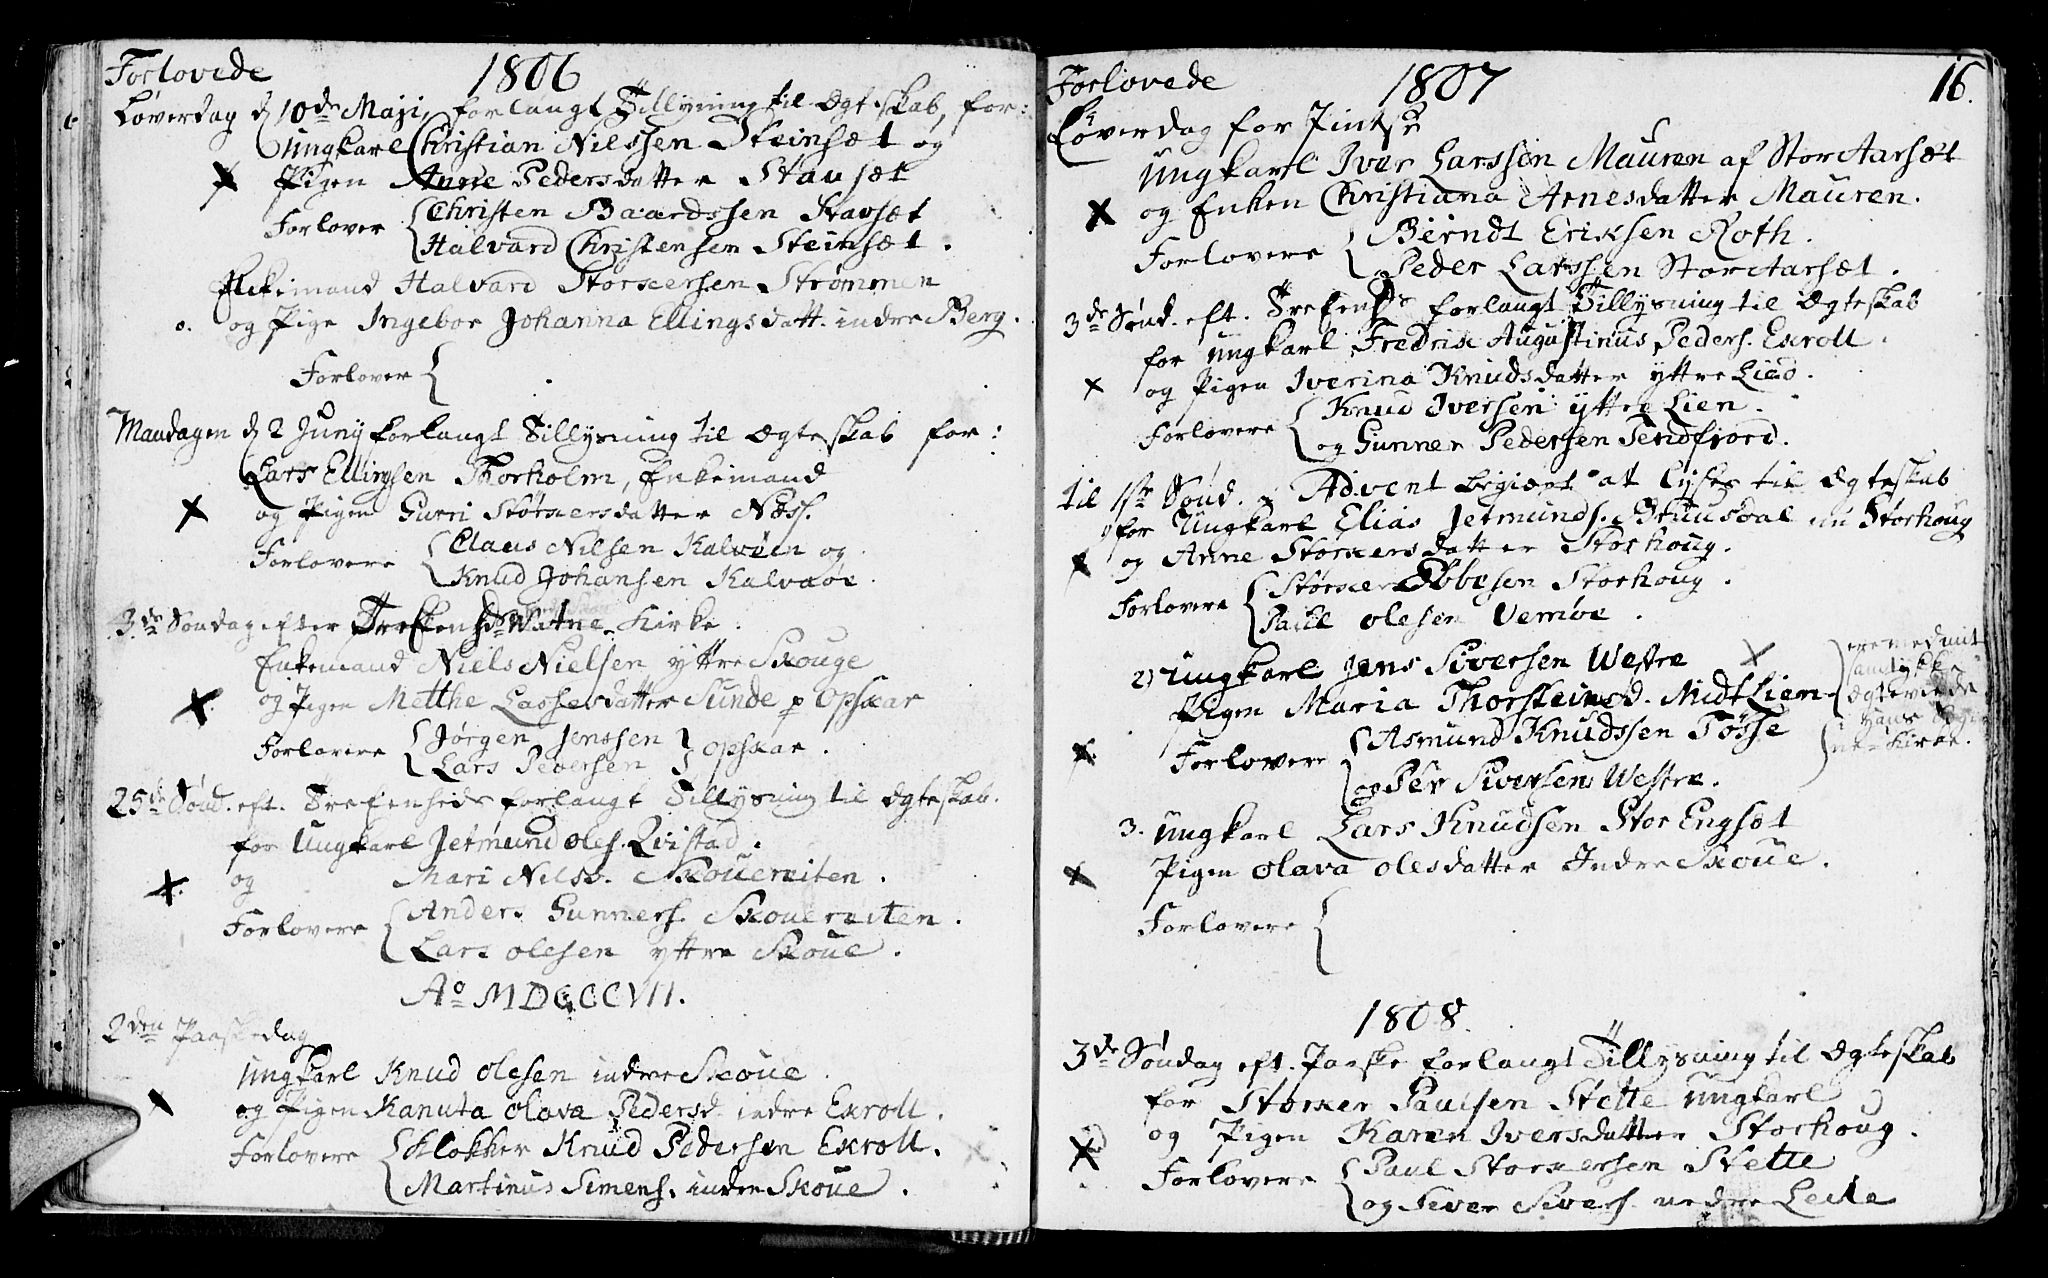 Forlovede 1806
Løverdag d 10de Maji, forlangt Tillysning til Ægteskab, for:
Ungkarl Christian Nilssen Steinsæt og
Pigen Anne Pedersdatter Stavsæt
Forlover Christen Baardssen Stavsæt
Halvard Christensen Steinsæt.
Enkemand Halvard Storkersen Strømmen
o. og Pige Ingebor Johanna Ellingsdatt. indre Berg.
Forlover
Mandagen d 2 Juny forlangt Tillysning til Ægteskab for:
Lars Ellingsen Thorholm, Enkemand
og Pigen Gurri Størkersdatter Næss.
Forlovere Claus Nilsen Kalvøen og
Knud Johansen Kalvøe.
3de Søndag efter Trefenhds Watne Kirke.
Enkemand Niels Nielsen yttre Skouge
og Pigen Metthe Lassesdatter Sunde p Opskar
Forlovere Jørgen Jenssen
Lars Pedersen Opskar.
25de Sønd. eft. Trefenheds forlangt Tillysning til Ægteskab.
for Ungkarl Jetmund Oles. Qvistad.
og Mari Nilsd. Skouereiten.
Forlovere Anders Gunners. Skouereiten.
Lars Olesen yttre Skoue.
Ao MDCCCVII.
2den Paaskedag
Ungkarl Knud Olesen indre Skoue.
og Pigen Kanuta Olava Pedersd. indre Exroll.
Forlovere Klokker Knud Pedersen Exroll.
Martinus Simens. indre Skoue.
Forlovede 1807 16.
Løverdag for Pintse
Ungkarl Iver Larssen Mauren af StorAarsæt
og Enken Christiana Arnesdatter Mauren.
Forlovere Berndt Eriksen Roth.
Peder Larssen StorAarsæt.
3de Sønd. eft. Trefenhds forlangt Tillysning til Ægteskab
for Ungkarl Fredrik Augustinus Peders. Exroll.
og Pigen Iverina Knudsdatter yttre Lied.
Forlovere Knud Iversen yttre Lien.
og Gunner Pedersen Tendfjord.
til 1ste Sønd. i Advent begiært at lyses til Ægteskab
for Ungkarl Elias Jetmunds. Bruusdal nu Storhoug
og Anne Størkersdatter Storhoug.
Forlovere Størker Ebbesen Storhoug.
Paul Olesen Vemøe.
2) Ungkarl Jens Siversen Westre
Pigen Maria Thorsteinsd. Midt Liem
ere med mit samtykke Ægteviede
Kirke.
Forlovere Asmund Knudssen Tøsse
og Per Siversen Westre.
3. Ungkarl Lars Knudsen Stor Engsæt
Pigen Olava Olesdatter Indre Skoue.
Forlovere
1808.
3de Søndag eft. Paaske forlangt Tillysning til Ægteskab
for Storker Paulsen Stette Ungkarl
og Pigen Karen Iversdatter Storhoug.
Forlovere Paul Storkersen Stette
og Siver Sivers. nedre Leite